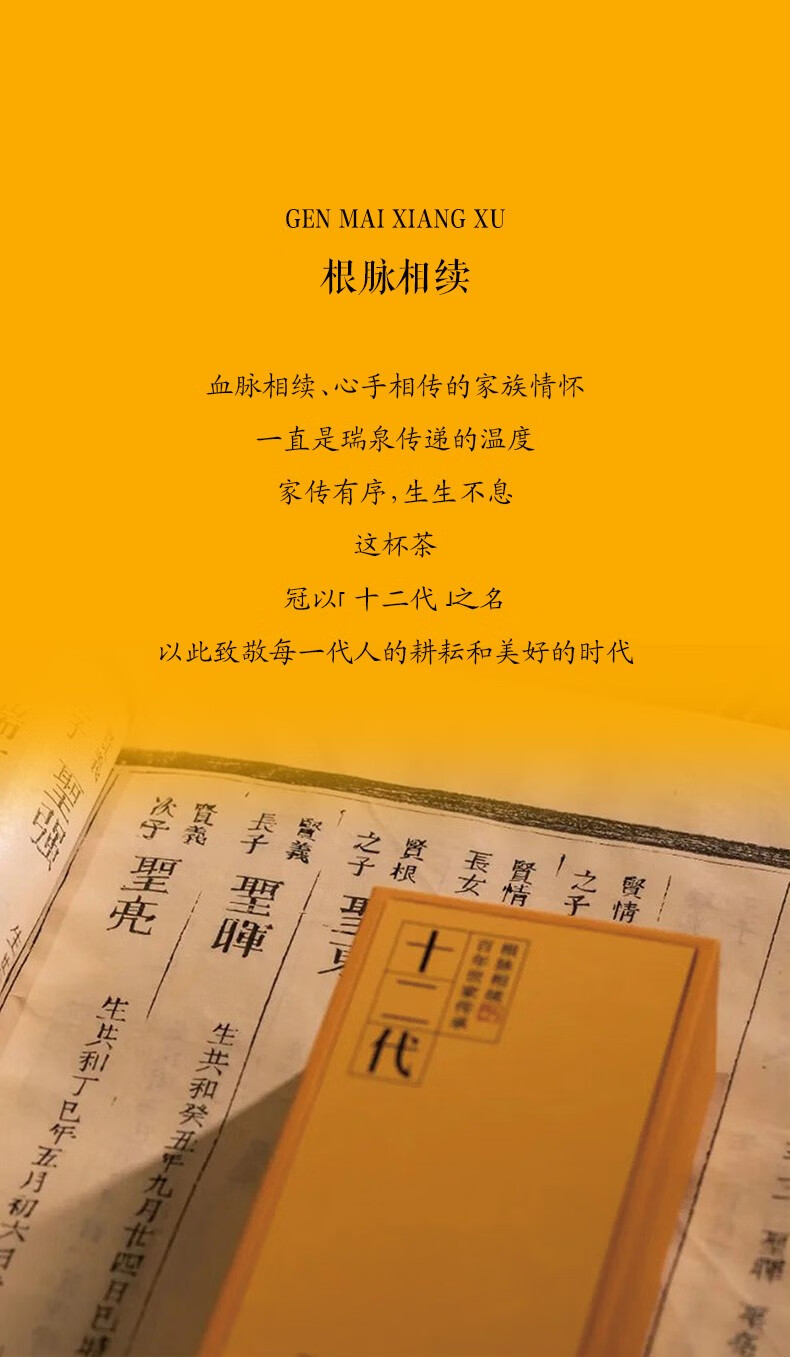 GEN MAI XIANG XU
根脉相续
血脉相续、心手相传的家族情怀
一直是瑞泉传递的温度
家传有序,生生不息
这杯茶
冠以「十二代」之名
以此致敬每一代人的耕耘和美好的时代
賢情
之子
賢情
長女
賢根
之子
賢義
長子
聖暉
生共和癸丑年九月廿四日巳時
賢義
次子
聖亮
生共和丁巳年五月初六日
根脉相续
百年世家传承
十二代